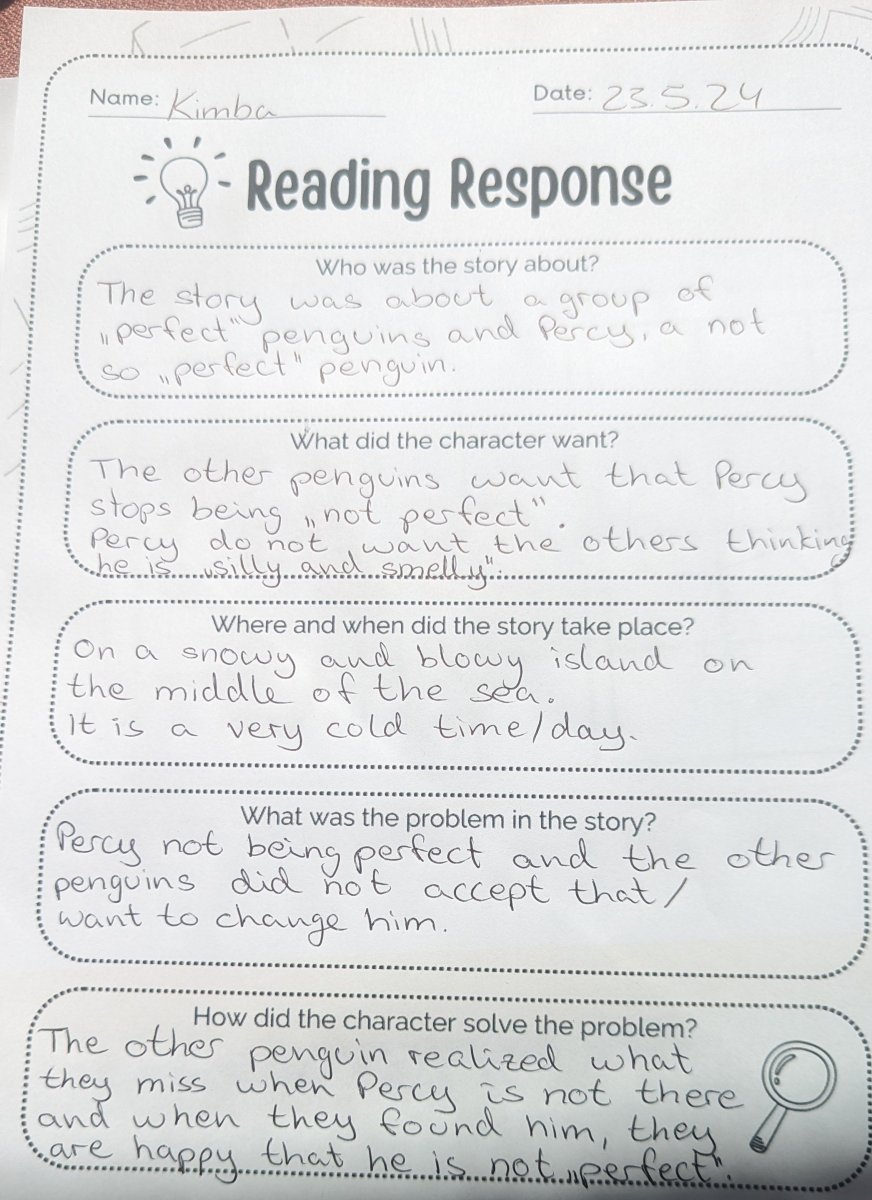 Name: Kimba
Date: 23.5.24
Reading Response
Who was the story about?
The story was about a group of
„perfect" penguins and Percy, a not
so „perfect" penguin.
What did the character want?
The other penguins want that Percy
stops being „not perfect".
Percy do not want the others thinking
he is „silly and smelly".
Where and when did the story take place?
On a snowy and blowy island on
the middle of the sea.
It is a very cold time/day.
What was the problem in the story?
Percy not being perfect and the other
penguins did not accept that/
want to change him.
How did the character solve the problem?
The other penguin realized what
they miss when Percy is not there
and when they found him, they
are happy that he is not „perfect".